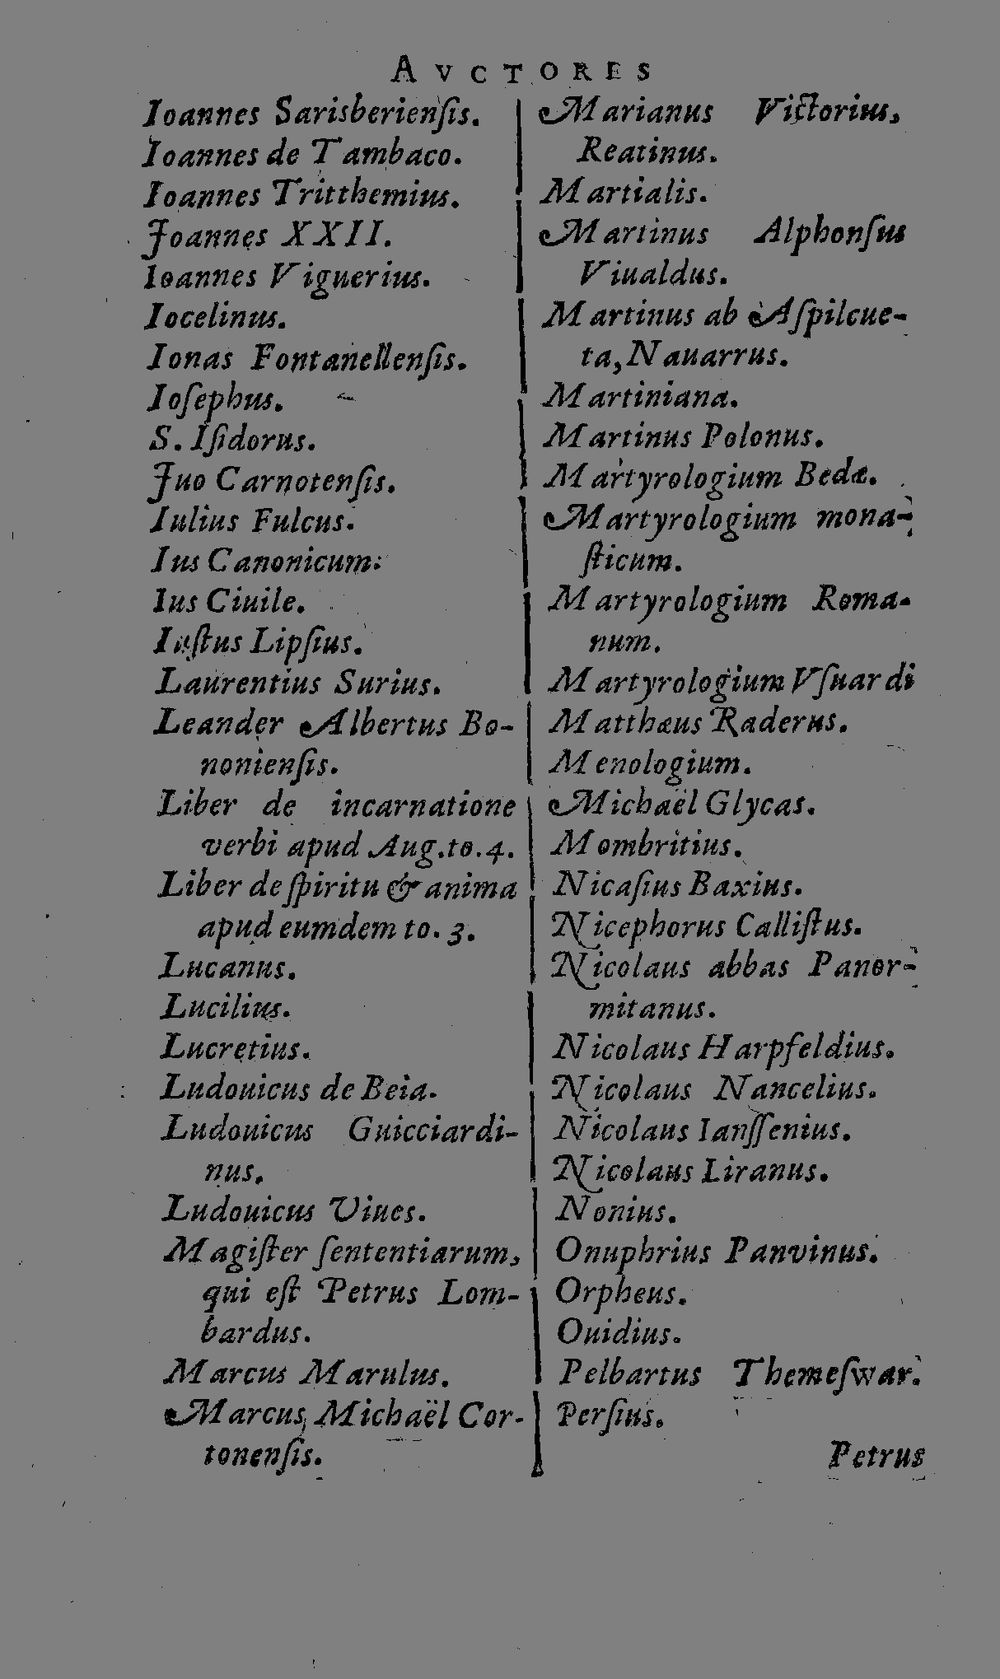 AVCTORES
Ioannes Sarisberienſis.
Ioannes de Tambaco.
Ioannes Tritthemius.
Joannes XXII.
Ioannes Viguerius.
Iocelinus.
Ionas Fontanellenſis.
Ioſephus.
S. Iſidorus.
Juo Carnotenſis.
Iulius Fulcus.
Ius Canonicum.
Ius Ciuile.
Iuſtus Lipſius.
Laurentius Surius.
Leander Albertus Bo-
nonienſis.
Liber de incarnatione
verbi apud Aug.to.4.
Liber de ſpiritu & anima
apud eumdem to. 3.
Lucanus.
Lucilius.
Lucretius.
Ludouicus de Beia.
Ludouicus Guicciardi-
nus.
Ludouicus Viues.
Magiſter ſententiarum,
qui eſt Petrus Lom-
bardus.
Marcus Marulus.
Marcus Michaël Cor-
tonenſis.
Marianus Victorius,
Reatinus.
Martialis.
Martinus Alphonſus
Viualdus.
Martinus ab Aſpilcue-
ta, Nauarrus.
Martiniana.
Martinus Polonus.
Martyrologium Bedæ.
Martyrologium mona-
ſticum.
Martyrologium Roma-
num.
Martyrologium Vſuardi
Matthæus Raderus.
Menologium.
Michaël Glycas.
Mombritius.
Nicaſius Baxius.
Nicephorus Calliſtus.
Nicolaus abbas Panor-
mitanus.
Nicolaus Harpfeldius.
Nicolaus Nancelius.
Nicolaus Ianſſenius.
Nicolaus Liranus.
Nonius.
Onuphrius Panvinus.
Orpheus.
Ouidius.
Pelbartus Themeſwar.
Perſius.
Petrus